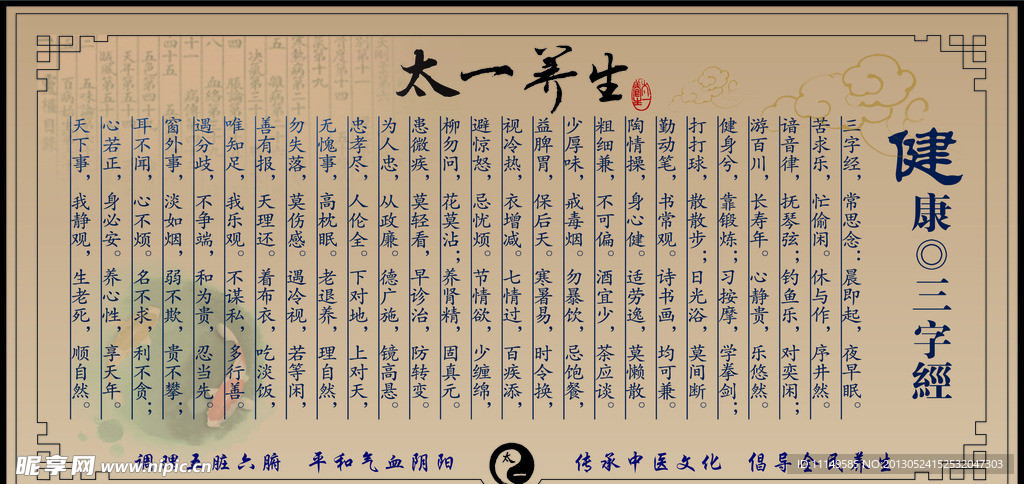 太一养生
健康◎三字經
三字经，常思念：晨即起，夜早眠。
苦求乐，忙偷闲。休与作，序井然。
谙音律，抚琴弦；钓鱼乐，对奕闲；
游百川，长寿年。心静贵，乐悠然。
健身兮，靠锻炼；习按摩，学拳剑；
打打球，散散步；日光浴，莫间断。
勤动笔，书常观。诗书画，均可兼。
陶情操，身心健。适劳逸，莫懒散。
粗细兼，不可偏。酒宜少，茶应谈。
少厚味，戒毒烟。勿暴饮，忌饱餐，
益脾胃，保后天。寒暑易，时令换，
视冷热，衣增减。七情过，百疾添，
避惊怒，忌忧烦。节情欲，少缠绵，
柳勿问，花莫沾；养肾精，固真元。
患微疾，莫轻看，早诊治，防转变。
为人忠，从政廉。德广施，镜高悬。
忠孝尽，人伦全。下对地，上对天，
无愧事，高枕眠。老退养，理自然，
勿失落，莫伤感。遇冷视，若等闲，
善有报，天理还。着布衣，吃淡饭，
唯知足，我乐观。不谋私，多行善。
遇分歧，不争端，和为贵，忍当先。
窗外事，淡如烟，弱不欺，贵不攀；
耳不闻，心不烦。名不求，利不贪；
心若正，身必安。养心性，享天年。
天下事，我静观，生老死，顺自然。
调理五脏六腑 平和气血阴阳
太一
传承中医文化 倡导全民养生
昵享网 www.nipic.cn
ID:11149585 NO:20130524152532047303